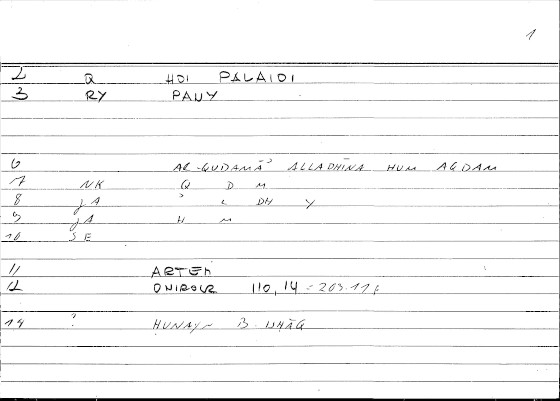 1
2 Q HOI PALAIOI
3 RY PAUY
6 AL-QUDAMĀʾ ALLADHĪNA HUM AQDAM
7 NK Q D M
8 JA ʾ L DH Y
9 JA H M
10 SE
11 ARTEM
12 ONIROCR 110,14 = 203.11f
14 ? HUNAYN B. ISḤĀQ